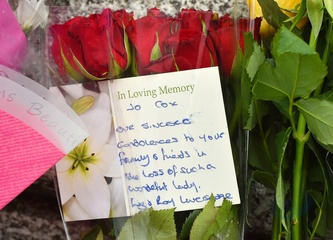 In Loving Memory
Jo Cox
Our sincere
Condolences to your
family & friends in
the loss of such a
wonderful lady.
Roy